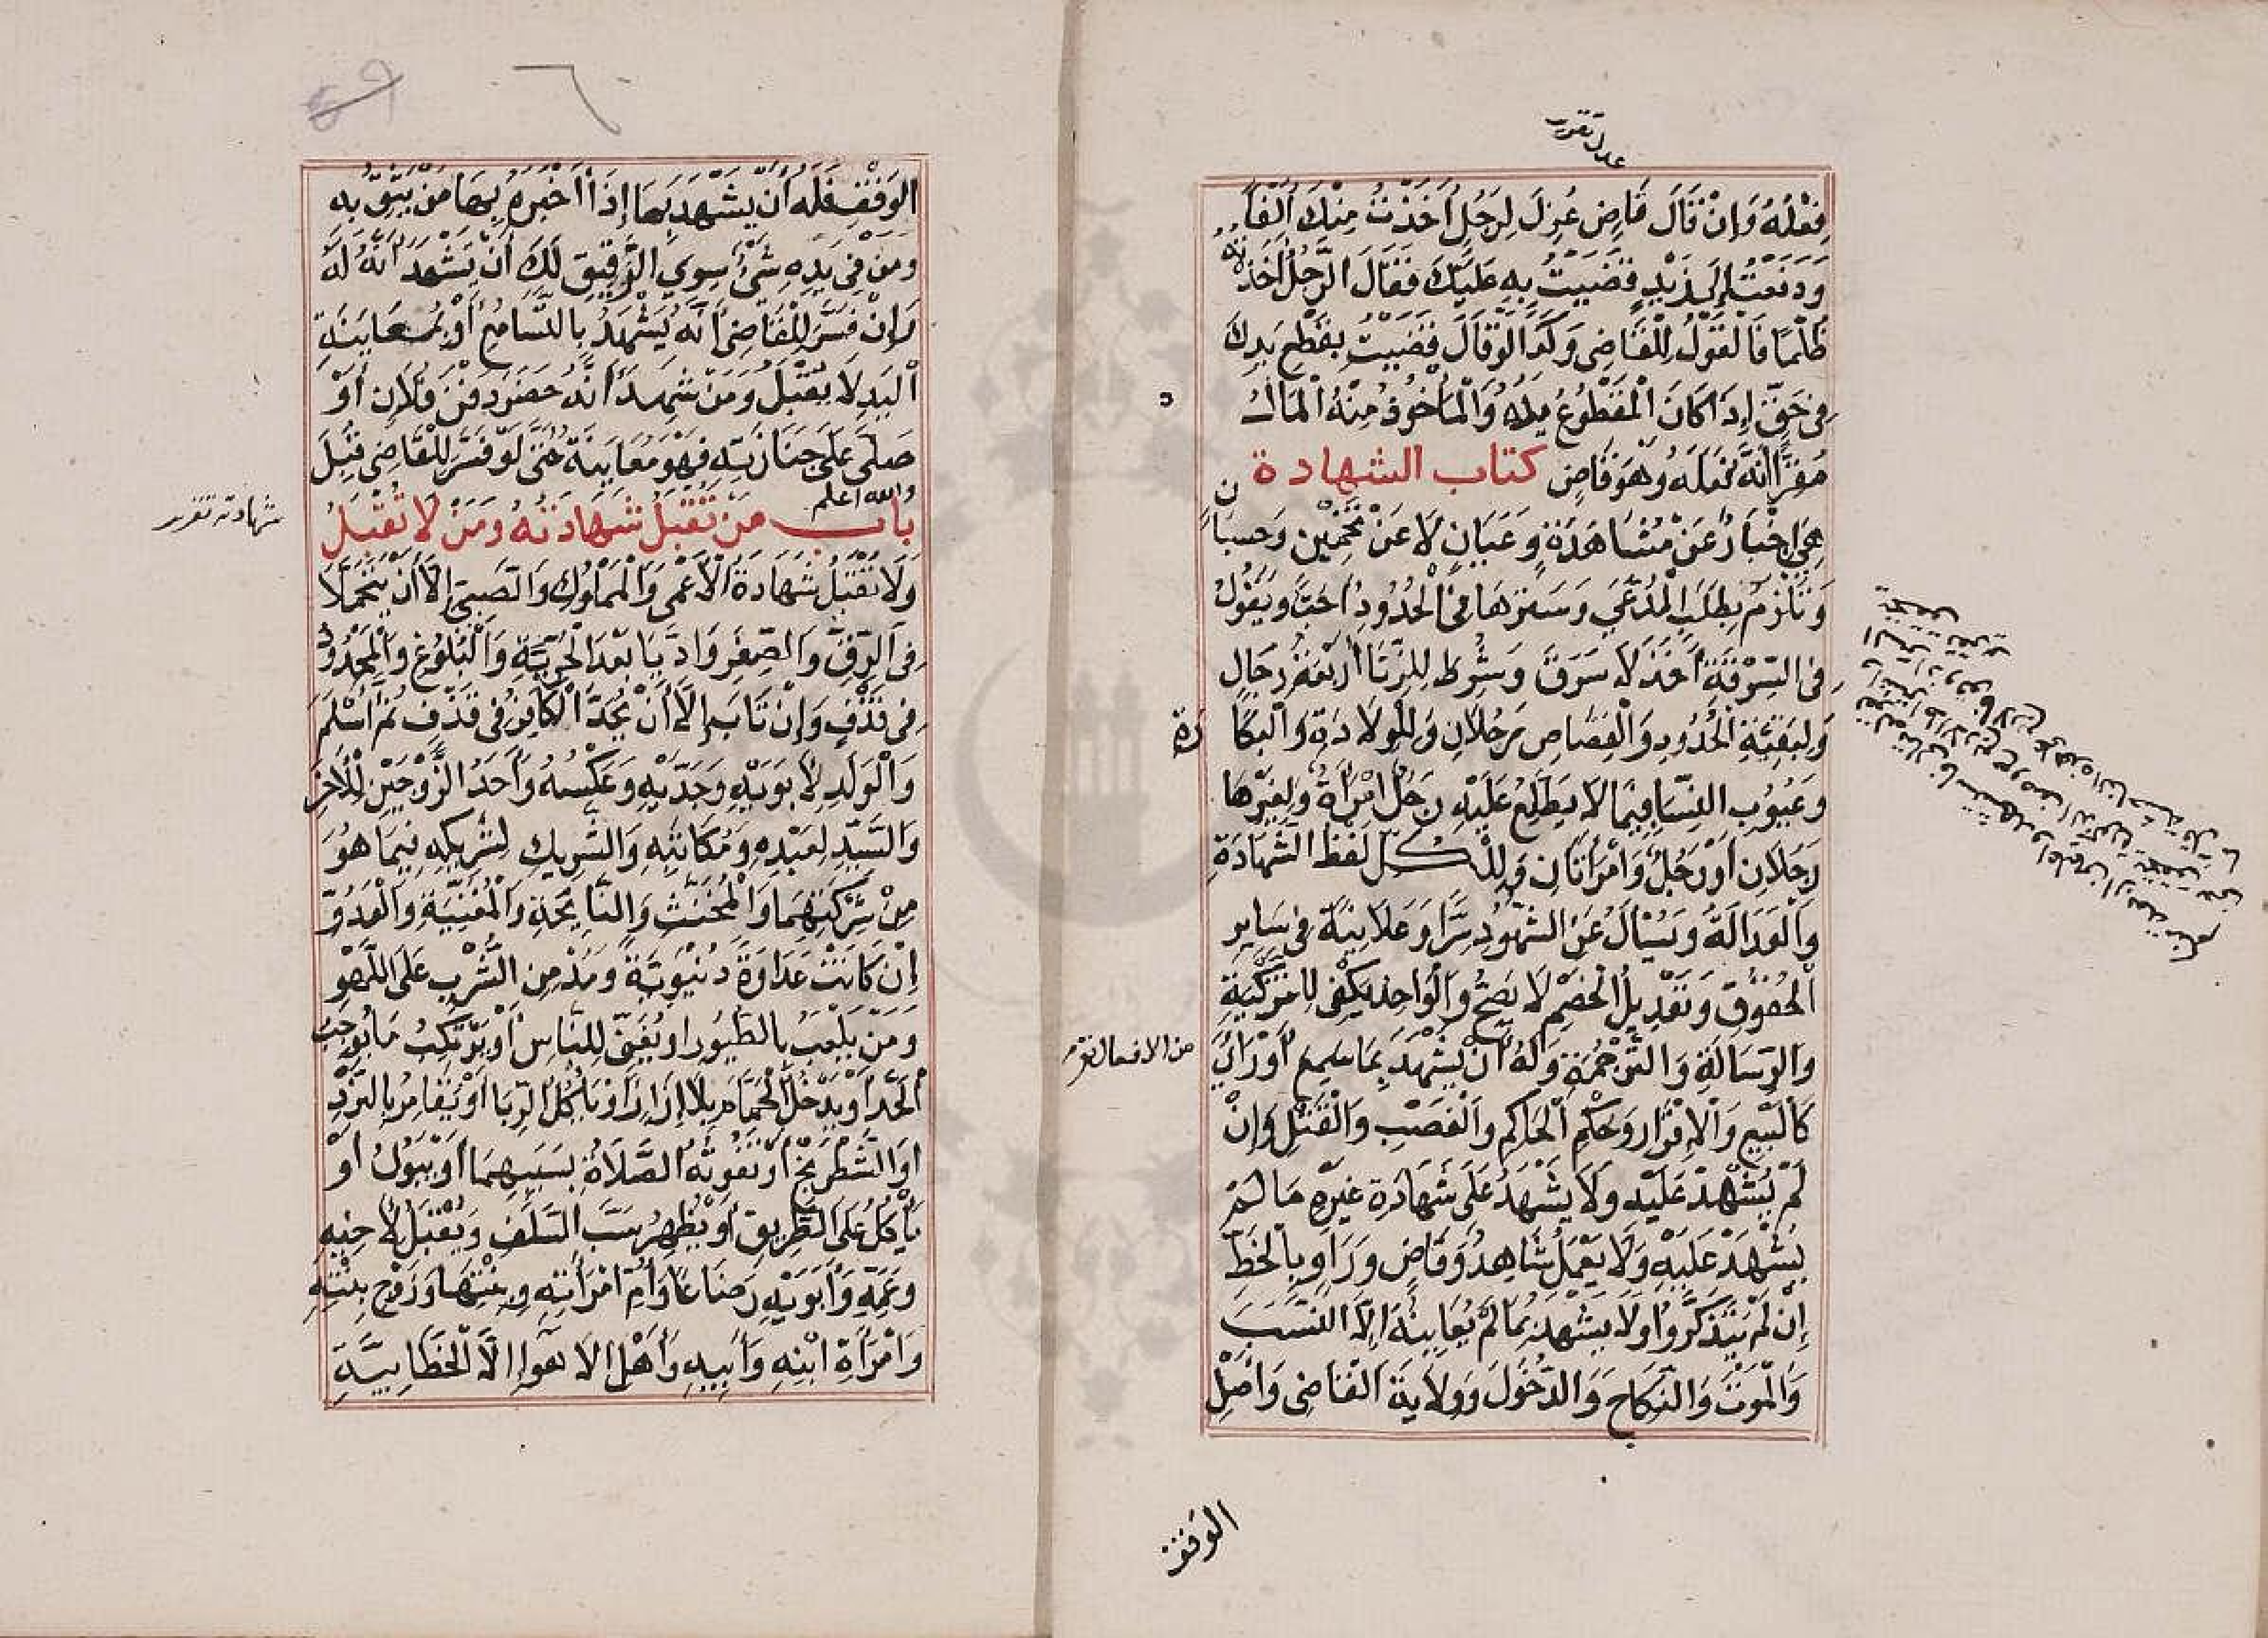 عدل تقرير
فِعْلُهُ وَإِنْ قَالَ قَاضٍ عُزِلَ لِرَجُلٍ أَخَذْتُ مِنْكَ أَلْفًا
وَدَفَعْتُهُ إِلَى زَيْدٍ قَضَيْتُ بِهِ عَلَيْكَ فَقَالَ الرَّجُلُ أَخَذْتَهُ
ظُلْمًا فَالْقَوْلُ لِلْقَاضِي وَكَذَا لَوْ قَالَ قَضَيْتُ بِقَطْعِ يَدِكَ
فِي حَقٍّ إِذَا كَانَ الْمَقْطُوعُ يَدُهُ وَالْمَأْخُوذُ مِنْهُ الْمَالُ
مُقِرًّا أَنَّهُ فَعَلَهُ وَهُوَ قَاضٍ كتاب الشهادة
هِيَ إِخْبَارٌ عَنْ مُشَاهَدَةٍ وَعَيَانٍ لَا عَنْ تَخْمِينٍ وَحِسْبَانٍ
وَتَلْزَمُ بِطَلَبِ الْمُدَّعِي وَسَتْرُهَا فِي الْحُدُودِ أَحَبُّ وَيَقُولُ
فِي السَّرِقَةِ أَخَذَ لَا سَرَقَ وَشُرِطَ لِلزِّنَا أَرْبَعَةُ رِجَالٍ
وَلِبَقِيَّةِ الْحُدُودِ وَالْقِصَاصِ رَجُلَانِ وَلِلْوِلَادَةِ وَالْبَكَارَةِ
وَعُيُوبِ النِّسَا فِيمَا لَا يَطَّلِعُ عَلَيْهِ رَجُلٌ امْرَأَةٌ وَلِغَيْرِهَا
رَجُلَانِ أَوْ رَجُلٌ وَامْرَأَتَانِ وَلِلْكُلِّ لَفْظُ الشَّهَادَةِ
وَالْعَدَالَةُ وَيُسْأَلُ عَنِ الشُّهُودِ سِرًّا وَعَلَانِيَةً فِي سَايِرِ
الْحُقُوقِ وَتَعْدِيلُ الْخَصْمِ لَا يَصِحُّ وَالْوَاحِدُ يَكْفِي لِلتَّزْكِيَةِ
وَالرِّسَالَةِ وَالتَّرْجُمَةِ وَلَهُ أَنْ يَشْهَدَ بِمَا سَمِعَ أَوْ رَأَى
من الافعال تقرير
كَالْبَيْعِ وَالْإِقْرَارِ وَحُكْمِ الْحَاكِمِ وَالْغَصْبِ وَالْقَتْلِ وَإِنْ
لَمْ يُشْهَدْ عَلَيْهِ وَلَا يَشْهَدُ عَلَى شَهَادَةِ غَيْرِهِ مَا لَمْ
يُشْهَدْ عَلَيْهِ وَلَا يَعْمَلُ شَاهِدٌ وَقَاضٍ وَرَاوٍ بِالْخَطِّ
إِنْ لَمْ يَتَذَكَّرُوا وَلَا يَشْهَدُ بِمَا لَمْ يُعَايِنْهُ إِلَّا النَّسَبَ
وَالْمَوْتَ وَالنِّكَاحَ وَالدُّخُولَ وَوِلَايَةَ الْقَاضِي وَأَصْلَ
الوقف
٦
الْوَقْفِ فَلَهُ أَنْ يَشْهَدَ بِهَا إِذَا أَخْبَرَهُ بِهَا مَنْ يَثِقُ بِهِ
وَمَنْ فِي يَدِهِ شَيْءٌ سِوَى الرَّقِيقِ لَكَ أَنْ تَشْهَدَ أَنَّهُ لَهُ
وَإِنْ فَسَّرَ لِلْقَاضِي أَنَّهُ يَشْهَدُ بِالتَّسَامُعِ أَوْ بِمُعَايَنَةِ
الْيَدِ لَا يُقْبَلُ وَمَنْ شَهِدَ أَنَّهُ حَضَرَ دَفْنَ فُلَانٍ أَوْ
صَلَّى عَلَى جَنَازَتِهِ فَهْوَ مُعَايَنَةٌ حَتَّى لَوْ فَسَّرَ لِلْقَاضِي قُبِلَ
والله اعلم
باب مَنْ تُقْبَلُ شَهَادَتُهُ وَمَنْ لَا تُقْبَلُ
شهادته تقرير
وَلَا تُقْبَلُ شَهَادَةُ الْأَعْمَى وَالْمَمْلُوكِ وَالصَّبِيِّ إِلَّا أَنْ يَتَحَمَّلَا
فِي الرِّقِّ وَالصِّغَرِ وَادَّيَا بَعْدَ الْحُرِّيَّةِ وَالْبُلُوغِ وَالْمَحْدُودُ
فِي قَذْفٍ وَإِنْ تَابَ إِلَّا أَنْ يُحَدَّ الْكَافِرُ فِي قَذْفٍ ثُمَّ أَسْلَمَ
وَالْوَلَدِ لِأَبَوَيْهِ وَجَدَّيْهِ وَعَكْسُهُ وَأَحَدُ الزَّوْجَيْنِ لِلْآخَرِ
وَالسَّيِّدِ لِعَبْدِهِ وَمُكَاتَبِهِ وَالشَّرِيكِ لِشَرِيكِهِ فِيمَا هُوَ
مِنْ شَرِكَتِهِمَا وَالْمُخَنَّثِ وَالنَّايِحَةِ وَالْمُغَنِّيَةِ وَالْعَدُوِّ
إِنْ كَانَتْ عَدَاوَةً دُنْيَوِيَّةً وَمُدْمِنِ الشُّرْبِ عَلَى اللَّهْوِ
وَمَنْ يَلْعَبُ بِالطُّيُورِ أَوْ يُغَنِّي لِلنَّاسِ أَوْ يَرْتَكِبُ مَا يُوجِبُ
الْحَدَّ أَوْ يَدْخُلُ الْحَمَّامَ بِلَا إِزَارٍ أَوْ يَأْكُلُ الرِّبَا أَوْ يُقَامِرُ بِالنَّرْدِ
أَوِ الشَّطْرَنْجِ أَوْ تَفُوتُهُ الصَّلَاةُ بِسَبَبِهِمَا أَوْ يَبُولُ أَوْ
يَأْكُلُ عَلَى الطَّرِيقِ أَوْ يُظْهِرُ سَبَّ السَّلَفِ وَيُقْبَلُ لِأَخِيهِ
وَعَمِّهِ وَأَبَوَيْهِ رَضَاعًا وَأُمِّ امْرَأَتِهِ وَبِنْتِهَا وَزَوْجِ بِنْتِهِ
وَامْرَأَةِ ابْنِهِ وَأَبِيهِ وَأَهْلِ الْأَهْوَا إِلَّا الْخَطَّابِيَّةَ